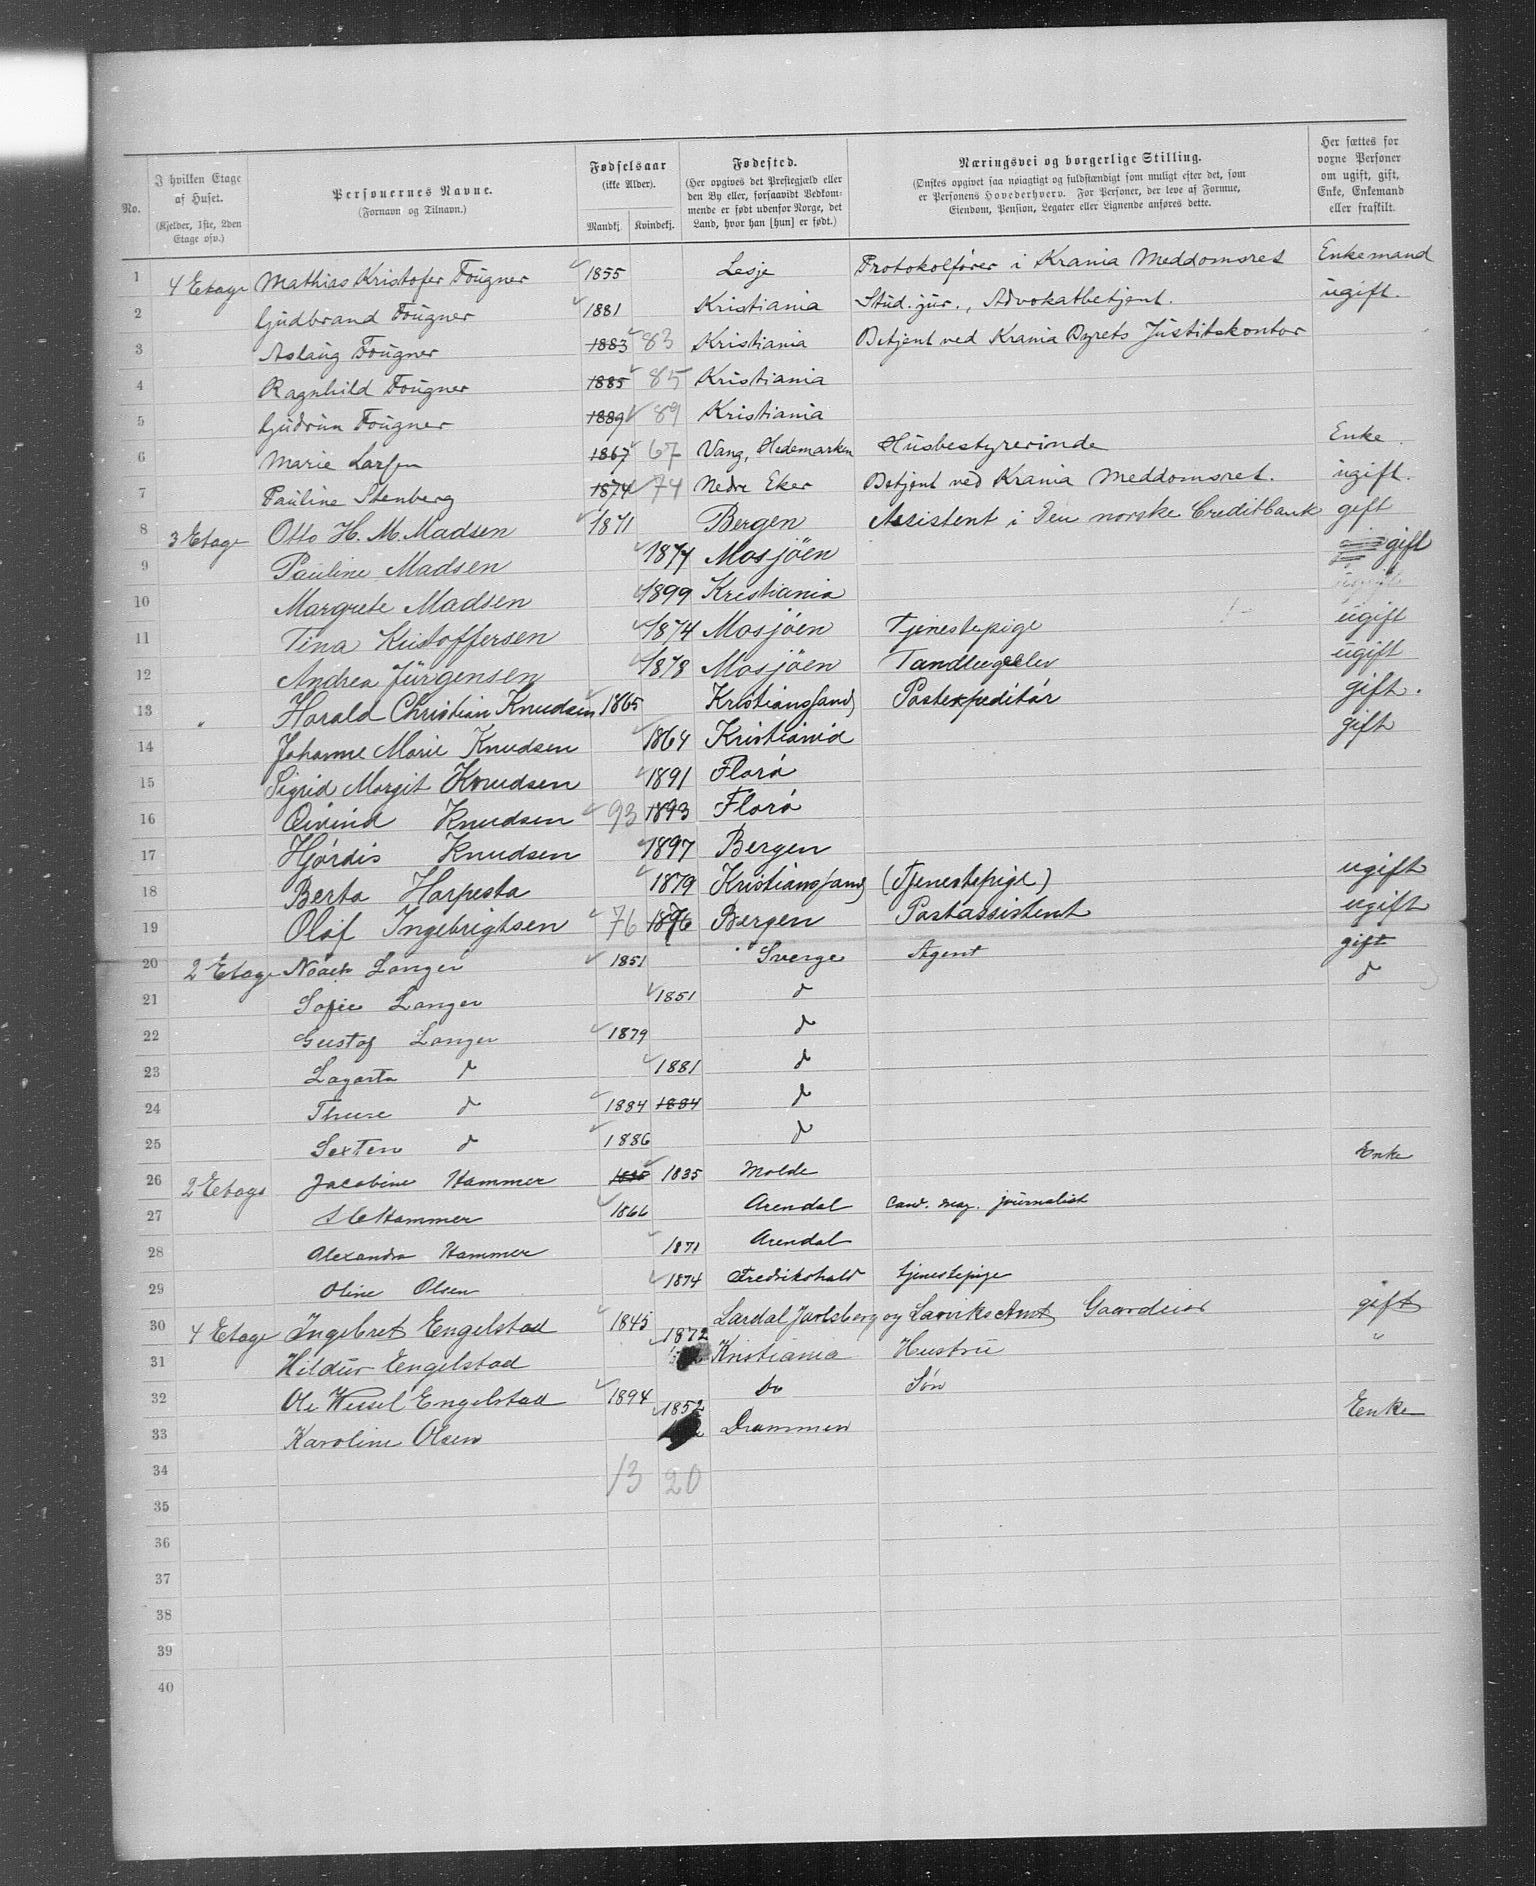 No.
I hvilken Etage af Huset. (Kjelder, 1ste, 2den Etage osv.)
Personernes Navne. (Fornavn og Tilnavn.)
Fødselsaar (ikke Alder). Mandkj. Kvindekj.
Fødested. (Her opgives det Prestegjæld eller den By eller, forsaavidt Vedkommende er født udenfor Norge, det Land, hvor han [hun] er født.)
Næringsvei og borgerlige Stilling. (Ønskes opgivet saa nøiagtigt og fuldstændigt som muligt efter det, som er Personens Hovederhverv. For Personer, der leve af Formue, Eiendom, Pension, Legater eller Lignende anføres dette.)
Her sættes for voxne Personer om ugift, gift, Enke, Enkemand eller fraskilt.
1 4 Etage Mathias Kristofer Fougner 1855 Lesje Protokolfører i Krania Meddomsret Enkemand
2 Gudbrand Fougner 1881 Kristiania Stud. jur., Advokatbetjent. ugift.
3 Aslaug Fougner 1883 83 Kristiania Betjent ved Krania Byrets Justitskontor
4 Ragnhild Fougner 1885 85 Kristiania
5 Gudrun Fougner 1889 89 Kristiania
6 Marie Larsen 1867 67 Vang, Hedemarken Husbestyrerinde Enke
7 Pauline Stenberg 1874 74 Nedre Eker Betjent ved Krania Meddomsret. ugift.
8 3 Etage Otto H. M. Madsen 1871 Bergen Assistent i Den norske Creditbank gift
9 Pauline Madsen 1877 Mosjöen gift
10 Margrete Madsen 1899 Kristiania
11 Tina Kristoffersen 1874 Mosjöen Tjenestepige ugift
12 Andrea Jürgensen 1878 Mosjöen Tandlægeelev ugift
13 " Harald Christian Knudsen 1865 Kristianssand Postexpeditör gift.
14 Johanne Marie Knudsen 1864 Kristiania gift
15 Sigrid Margit Knudsen 1891 Florö
16 Eivind Knudsen 93 1893 Florö
17 Hjördis Knudsen 1897 Bergen
18 Berta Harpesta 1879 Kristianssand (Tjenestepige) ugift
19 Olaf Ingebrigtsen 76 1876 Bergen Postassistent ugift
20 2 Etage Noach Langer 1851 Sverge Agent gift
21 Sofie Langer 1851 d d
22 Gustaf Langer 1879 d
23 Lagarta d 1881 d
24 Thure d 1884 1884 d
25 Sexten d 1886 d
26 2 Etage Jacobine Hammer 1835 1835 Molde Enke
27 S C Hammer 1866 Arendal Cand. mag. journalist
28 Alexandra Hammer 1871 Arendal
29 Oline Olsen 1874 Fredrikshald tjenestepige
30 4 Etage Ingebret Engelstad 1845 Lardal Jarlsberg og Larviks Amt Gaardeier gift
31 Hildur Engelstad 1872 Kristiania Hustru "
32 Ole Wessel Engelstad 1894 Do Søn
33 Karoline Olsen 1852 Drammen Enke
34 13 20
35
36
37
38
39
40